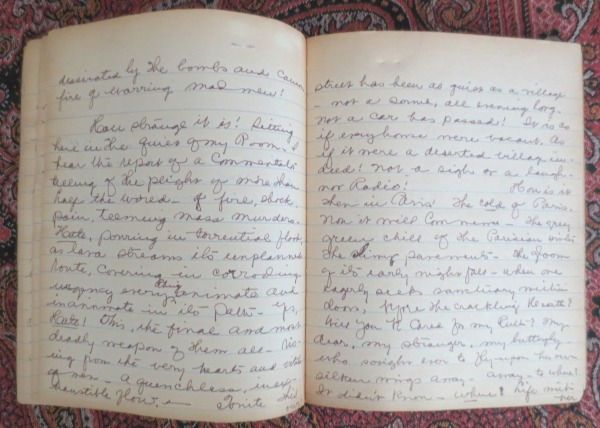 desecrated by the bombs and cannon
fire of warring mad men!
How strange it is! Sitting
here in the quiet of my Room, I
hear the report of a Commentator
telling of the plight of more than
half the world - of fire, shock,
pain, teeming mass murders.
Hate, pouring in torrential floods,
as lava streams its unplanned
route, covering in corroding
every thing animate and
inanimate in its path - yes,
Hate! This, the final and most
deadly weapon of them all - ris-
ing from the very hearts and
of men - a quenchless, inex-
haustible flow. Tonite this
street has been as quiet as a village
- not a sound, all evening long.
Not a car has passed! It is as
if every house were vacant. As
if it were a deserted village in-
deed! Not a sigh or a laugh -
nor Radio! How is it
then in Paris? The cold of Paris.
Now it will Commence - the grey
green chill of the Parisian winter
The slimy pavements - the gloom
of its early nightfall - when one
eagerly seeks sanctuary within
doors, before the crackling Hearth?
Will you to Care for my Ruth? My
dear, my stranger, my butterfly
who sought ever to fly upon her own
silken wings away - away - to where?
It didn't know - where! Life